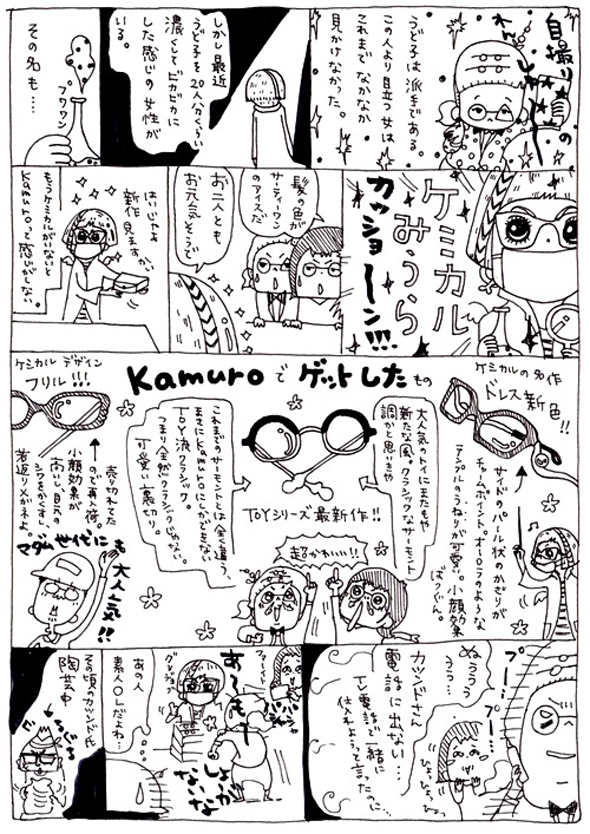 自撮りの
れんしゅう
うど子は派手である。
この人より目立つ女は
これまでなかなか
見かけなかった。
しかし最近
うど子を20人ハクくらい
濃くしてビカビカに
した感じの女性が
いる。
プワワン
その名も…
ケミカル
みうら
カッショーン!!!
髪の色が
サーティーワン
のアイスだ
お二人とも
お元気そうで
はいじゃよ
新作見ますかい
もうケミカルがいないと
Kamuroって感じがしない。
Kamuroでゲットしたもの
ケミカルの名作
ドレス新色!!
サイドのパール状のかざりが
チャームポイント、オーロラのような
テンプルのうねりが可愛い。小顔効果
ばつぐん。
大人気のトイにまたもや
新たな風。クラシックなサーモント
調かと思いきや
TOYシリーズ最新作!!
これまでのサーモントとは全く違う、
まさにKamuroにしかできない
TOY流クラシック。
つまり全然クラシックじゃない。
可愛い裏切り。
超かわいい!!
ケミカルデザイン
フリル!!!
売り切れてた
ので再入荷。
小顔効果が
高いし目元の
シワをかくすし、
若返りメガネよ。
マダム世代にも
大人気!!
プー…プー…
ぬううう
うう…
カツンドさん
電話に出ない…
TV電話で一緒に
仕入れようって言ったのに…
ひょっひょっひょっ
ファイト
バシャ
バシャ
あ〜もぉ〜
しょうが
ないな
あの人
素人OLだよね…
その頃のカツンド氏
陶芸中